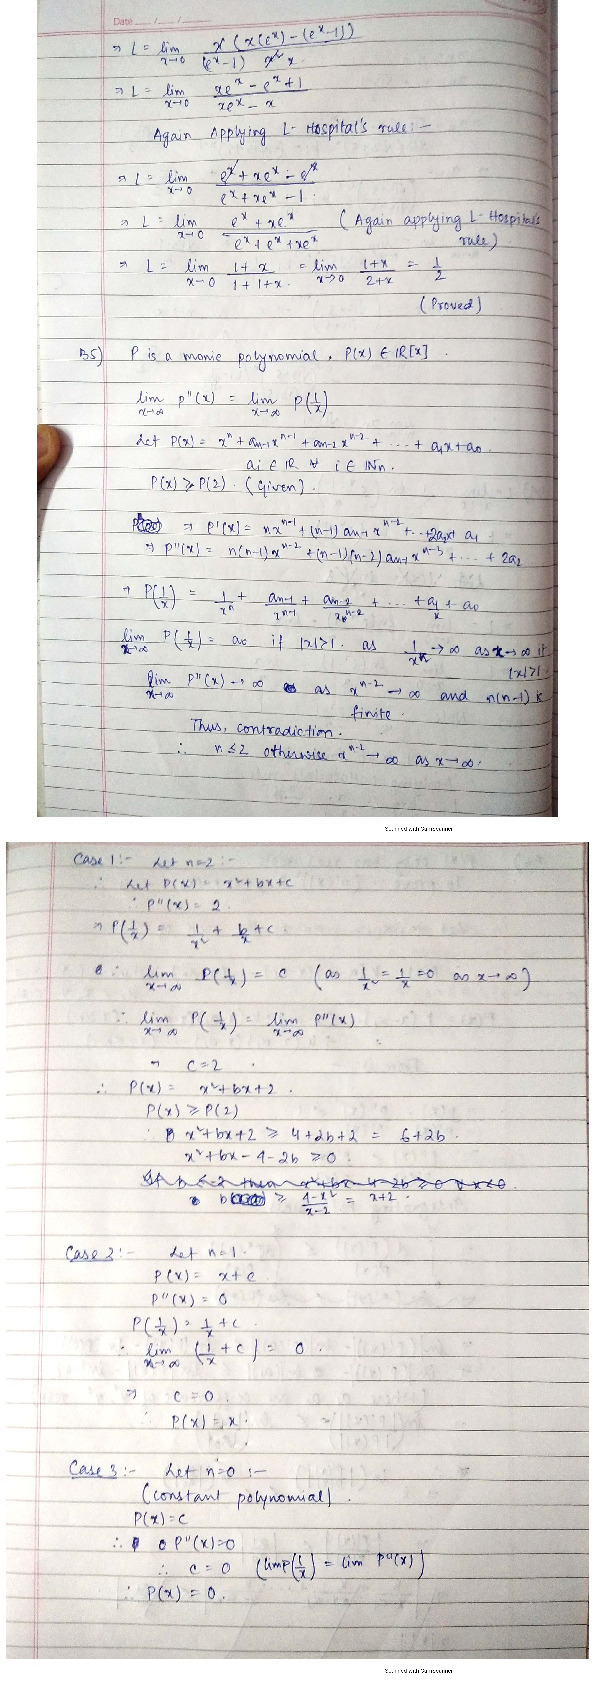 Date
⇒ L = lim x→0 x (x(eˣ) - (eˣ-1)) / (eˣ-1) x² x
⇒ L = lim x→0 xeˣ - eˣ + 1 / xeˣ - x
Again Applying L-Hospital's rule:-
⇒ L = lim x→0 eˣ + xeˣ - eˣ / eˣ + xeˣ - 1
⇒ L = lim x→0 eˣ + xeˣ / eˣ + eˣ + xeˣ (Again applying L-Hospital's rule)
⇒ L = lim x→0 1+x / 1+1+x = lim x→0 1+x / 2+x = 1/2
(Proved)
B5) P is a monic polynomial, P(x) ∈ IR[x].
lim x→∞ p"(x) = lim x→∞ P(1/x)
Let P(x) = xⁿ + aₙ₋₁xⁿ⁻¹ + aₙ₋₂xⁿ⁻² + ... + a₁x + a₀.
ai ∈ IR ∀ i ∈ INn.
P(x) ≥ P(2). (Given).
⇒ P'(x) = nxⁿ⁻¹ + (n-1)aₙ₋₁xⁿ⁻² + ... + 2a₂x + a₁
⇒ P"(x) = n(n-1)xⁿ⁻² + (n-1)(n-2)aₙ₋₁xⁿ⁻³ + ... + 2a₂
⇒ P(1/x) = 1/xⁿ + aₙ₋₁/xⁿ⁻¹ + aₙ₋₂/xⁿ⁻² + ... + a₁/x + a₀
lim x→∞ P(1/x) = a₀ if |x|>1. as 1/xⁿ → ∞ as x→∞ if |x|>1.
lim x→∞ P"(x) → ∞ as xⁿ⁻² → ∞ and n(n-1) is
finite.
Thus, contradiction.
∴ n ≤ 2 otherwise xⁿ⁻² → ∞ as x→∞.
Scanned with CamScanner
Case 1:- Let n=2:-
∴ Let P(x) = x²+bx+c
∴ P"(x) = 2.
⇒ P(1/x) = 1/x² + b/x + c.
∴ lim x→∞ P(1/x) = c (as 1/x² = 1/x = 0 as x→∞)
∴ lim x→∞ P(1/x) = lim x→∞ P"(x)
⇒ c=2
∴ P(x) = x²+bx+2.
P(x) ≥ P(2)
∴ x²+bx+2 ≥ 4+2b+2 = 6+2b.
x²+bx-4-2b ≥ 0.
b ≥ 4-x² / x-2 = x+2.
Case 2:- Let n=1.
P(x) = x+c.
P"(x) = 0
P(1/x) = 1/x + c.
∴ lim x→∞ (1/x + c) = 0.
⇒ c = 0.
∴ P(x) = x.
Case 3:- Let n=0:-
(constant polynomial).
P(x)=c
∴ P"(x)=0
∴ c = 0 (lim P(1/x) = lim P"(x))
∴ P(x) = 0.
Scanned with CamScanner